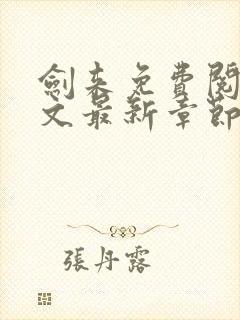 劍来免費閱
文最新章節
張丹露